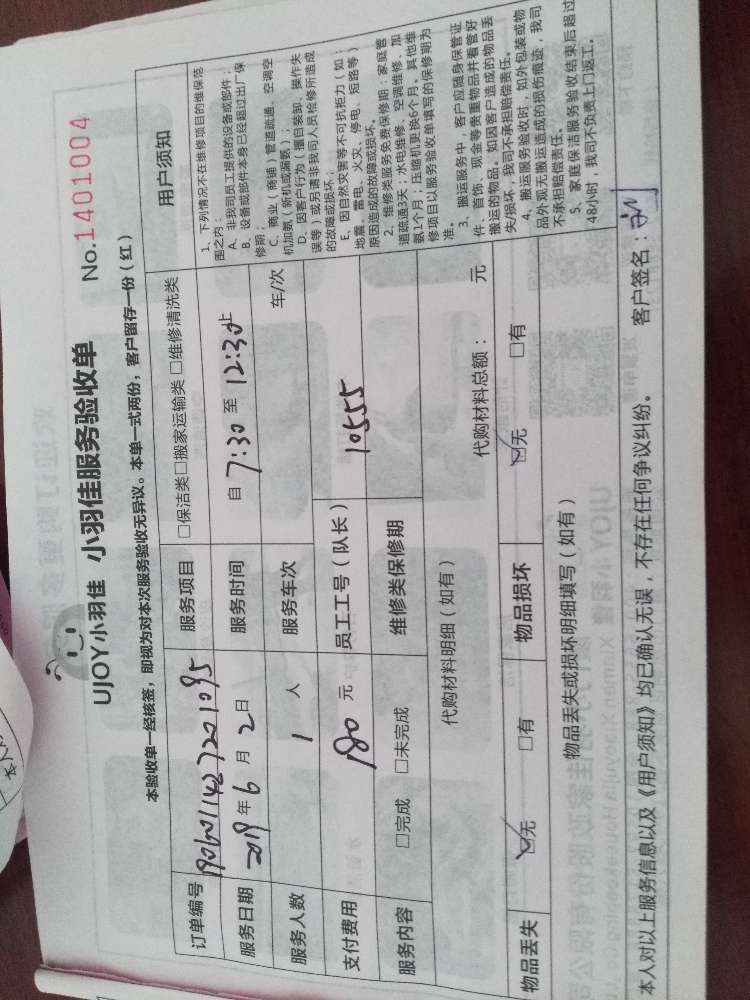 UJOY小羽佳 小羽佳服务验收单 No.1401004
本验收单一经核签，即视为对本次服务验收无异议。本单一式两份，客户留存一份（红）
订单编号 1906011427201095 服务项目 □保洁类□搬家运输类 □维修清洗类
服务日期 2019年6月2日 服务时间 自 7:30 至 12:30止
服务人数 1 人 服务车次 车/次
支付费用 180 元 员工工号（队长） 10555
服务内容 □完成 □未完成 维修类保修期
代购材料明细（如有） 代购材料总额： 元
物品丢失 ☑无 □有 物品损坏 ☑无 □有
物品丢失或损坏明细填写（如有）
用户须知
1、下列情况不在维修项目的维保范
围之内：
A、非我司员工提供的设备或部件；
B、设备或部件本身已经超过出厂保
修期；
C、商业（商铺）管道疏通、空调空
机加氨（新机或漏氨）；
D、因客户行为（擅自装卸、操作失
误等）或另请非我司人员检修所造成
的故障或损坏；
E、因自然灾害等不可抗拒力（如：
地震、雷电、火灾、停电、短路等）
原因造成的故障或损坏。
2、维修类服务免费保修期：家庭管
道疏通3天；水电维修、空调维修、加
氨1个月；压缩机更换6个月。其他维
修项目以服务验收单填写的保修期为
准。
3、搬运服务中，客户应随身保管证
件、首饰、现金等贵重物品并看管好
搬运的物品。如因客户造成的物品丢
失/损坏，我司不承担赔偿责任。
4、搬运服务验收时，如外包装或物
品外观无搬运造成的损伤痕迹，我司
不承担赔偿责任。
5、家庭保洁服务验收结束后超过
48小时，我司不负责上门返工。
本人对以上服务信息以及《用户须知》均已确认无误，不存在任何争议纠纷。 客户签名：